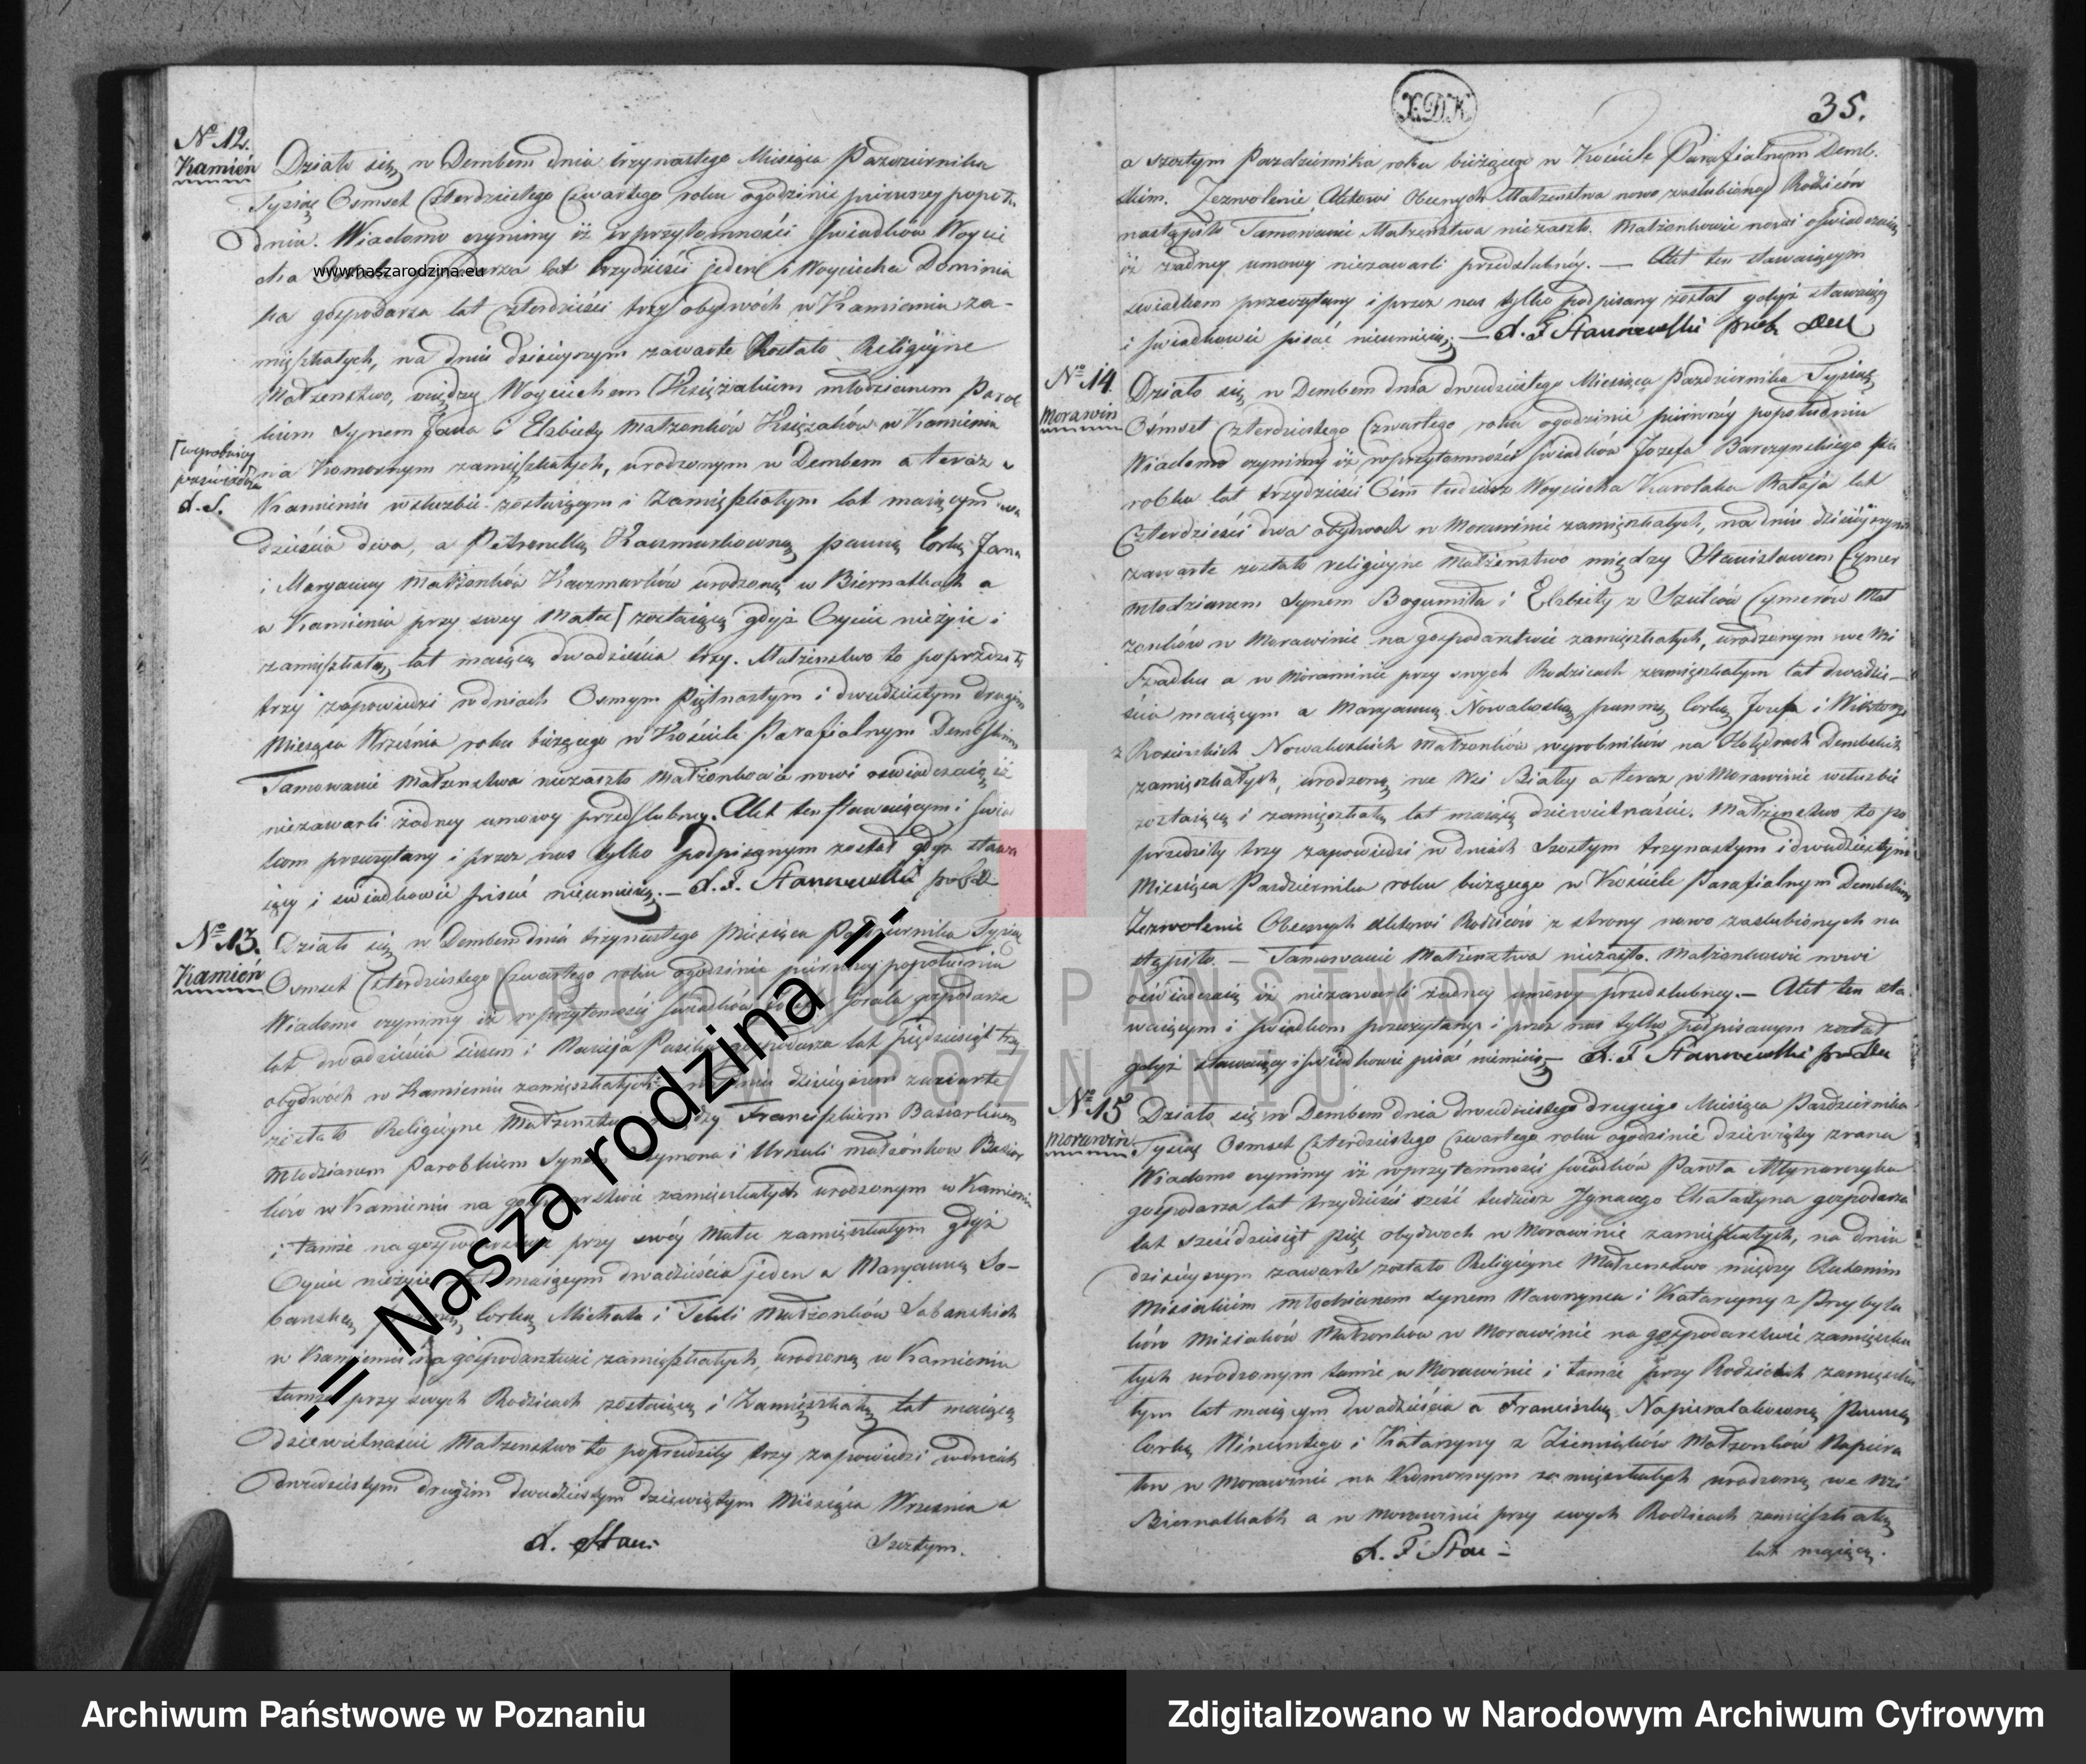 No 12.
Kamień
Działo się w Dembem dnia trzynastego Miesiąca Pazdziernika
Tysiąc Osmset Czterdziestego Czwartego roku ogodzinie pierwszey popołu
dniu. Wiadomo czynimy iż w przytomności Świadków Woycie
cha lat trzydzieści jeden i Woyciecha Dominia
ka gospodarza lat Czterdzieści trzy obydwóch w Kamieniu za-
mięszkałych, na dniu dzisieyszym zawarte Zostało Religiyne
Małzenstwo, między Woyciechem Księżakiem młodzianem Parob
kiem Synem Jana i Elzbiety Małzonków Księzaków w Kamieniu
[wyrobnicy
na Komornym zamięszkałych, urodzonym w Dembem a teraz w
A. S.
Kamieniu w służbie zostaiącym i Zamięszkałym lat maiącym dwa
dzieścia dwa, a Petronellą Kaczmarkowną panną Corką Jana
i Maryanny Małżonków Kaczmarków urodzoną w Biernatkach a
w Kamieniu przy swey Matce [ zostaiącą gdyż Oyciec nieżyie i
zamięszkałą, lat maiącą dwadzieścia trzy. Małzenstwo to poprzedziły
trzy zapowiedzi w dniach Osmym Piętnastym i dwudziestym drugim
Miesiąca Września roku bieżącego w Kościele Parafialnym Dembskim
Tamowanie Małzenstwa niezaszło Małżonkowie nowi oświadczaią iż
niezawarli żadney umowy przedślubney. Akt ten stawaiącym i świad
kom przeczytany i przez nas tylko podpisanym został gdyż stawa
iący i świadkowie pisać nieumieią. — A. F. Stanczewski
No 13.
Kamień
Działo się w Dembem dnia trzynastego Miesiąca Pazdziernika Tysiąc
Osmset Czterdziestego Czwartego roku ogodzinie pierwszey popołudniu
Wiadomo czynimy iż w przytomności Świadków Górala gospodarza
lat dwadzieścia siedem i Macieja Pasika gospodarza lat pięćdziesiąt trzy
obydwóch w Kamieniu zamięszkałych na dniu dzisieyszem zawarte
zostało Religiyne Małzenstwo między Franciszkiem Basiarkiem
Młodzianem Parobkiem Synem Szymona i Urszuli małżonkow Basiar
ków w Kamieniu na gospodarstwie zamięszkałych urodzonym w Kamieniu
i tamże na gospodarstwie przy swéy Matce zamięszkałym gdyż
Oyciec nieżyie lat maiącym dwadzieścia jeden a Maryanną So-
banską panną, Corką Michała i Tekli Małżonków Sobanskich
w Kamieniu na gospodarstwie zamięszkałych, urodzoną w Kamieniu
tamże przy swych Rodzicach zostaiącą i Zamięszkałą lat maiącą
dziewietnaście Małzenstwo to poprzedziły trzy zapowiedzi w dniach
dwudziestym drugim dwudziestym dziewiątym Miesiąca Wrzesnia a
A. Stan. Szóstym.
X.D.K
35.
a szostym Pazdziernika roku bieżącego w Kościele Parafialnym Demb.
skim. Zezwolenie Aktowi Obecnych Małzenstwa nowo zaslubioney Rodziców
nastąpiło Tamowanie Małzenstwa niezaszło. Małżonkowie nowi oświadczaią
iż żadney umowy niezawarli przedślubnéy. — Akt ten stawaiącym
świadkom przeczytany i przez nas tylko podpisany został gdyż stawaiący
i świadkowie pisać nieumieią. — A. F Stanczewski
No 14.
Morawin
Działo się w Dembem dnia dwudziestego Miesiąca Pazdziernika Tysiąc
Osmset Czterdziestego Czwartego roku ogodzinie pierwszéy popołudniu
Wiadomo czynimy iż w przytomności Świadków Jozefa Barczynskiego Pa
robka lat trzydzieści Ośm tudzież Woyciecha Karolaka Rataja lat
Czterdzieści dwa obydwoch w Morawinie zamięszkałych, na dniu dzisieyszym
zawarte zostało religiyne Małżenstwo między Stanisławem Cymer
młodzianem Synem Bogumiła i Elzbiety z Szulców Cymerów Mał
zonków w Morawinie na gospodarstwie zamięszkałych, urodzonym we Wsi
Szadku a w Morawinie przy swych Rodzicach zamięszkałym lat dwadzie—
ścia maiącym a Maryanną Nowakoską panną Corką Jozefa i Wiktoryi
z Rosinskich Nowakoskich Małzonków wyrobników na Holędrach Dembskich
zamięszkałych, urodzoną we Wsi Białey a teraz w Morawinie w służbie
zostaiącą i zamięszkałą lat maiącą dziewietnaście. Małżenstwo to po
przedziły trzy zapowiedzi w dniach Szostym trzynastym i dwudziestym
Miesiąca Pazdziernika roku bieżącego w Kościele Parafialnym Dembskim
Zezwolenie Obecnych Aktowi Rodziców z strony nowo zaslubionych na
stąpiło. — Tamowanie Małzenstwa niezaszło. Małzonkowie nowi
oświadczaią iż niezawarli żadney umowy przedslubney. — Akt ten sta
waiącym i świadkom przeczytany i przez nas tylko podpisanym został
gdyż stawaiący i świadkowie pisać nieumieią — A. F Stanczewski
No 15
Morawin
Działo się w Dembem dnia dwudziestego drugiego Miesiąca Pazdziernika
Tysiąc Osmset Czterdziestego Czwartego roku ogodzinie dziewiątey zrana
Wiadomo czynimy iż w przytomności świadków Pawła Młynarczyka
gospodarza lat trzydzieści sześć tudzież Jgnacego Chatastyna gospodarza
lat sześdziesiąt pięć obydwoch w Morawinie zamięszkałych, na dniu
dzisieyszym zawarte zostało Religiyne Małzenstwo między Antonim
Misiakiem młodzianem synem Wawrzynca i Katarzyny z Przybyła
ków Misiaków Małzonkow w Morawinie na gospodarstwie zamięszka
łych urodzonym tamże w Morawinie i tamże przy Rodzicach zamięszka
łym lat maiącym dwadzieścia a Franciszką Napierałakowną Panną
Corką Wincentego i Katarzyny z Ziemiaków Małzonków Napiera
łow w Morawinie na Komornym zamięszkałych urodzoną we Wsi
Biernatkach a w Morawinie przy swych Rodzicach zamieszkałą
A. F Stan - lat maiącą.
www.naszarodzina.eu
-= Nasza rodzina =-
ARCHIWUM PAŃSTWOWE
W POZNANIU
Archiwum Państwowe w Poznaniu
Zdigitalizowano w Narodowym Archiwum Cyfrowym